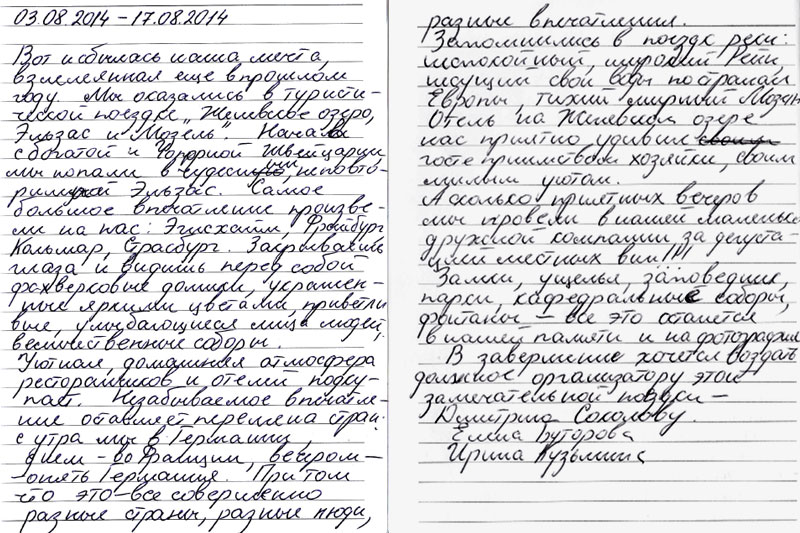 03.08.2014 – 17.08.2014
Вот и сбылась наша мечта,
взлелеянная еще в прошлом
году. Мы оказались в туристи-
ческой поездке „Женевское озеро,
Эльзас и Мозель". Начав
с богатой и горной Швейцарии,
мы попали в чудесный, неповто-
римый Эльзас. Самое
большое впечатление произве-
ли на нас: Эгисхайм, Фрайбург
Кольмар, Страсбург. Закрываешь
глаза и видишь перед собой
фахверковые домики, украшен-
ные яркими цветами, приветли
вые, улыбающиеся лица людей,
величественные соборы.
Уютная, домашняя атмосфера
ресторанчиков и отелей подку-
пает. Незабываемое впечатле-
ние оставляет перемена стран:
с утра мы в Германии,
днем – во Франции, вечером –
– опять Германия. При том
что это – все совершенно
разные страны, разные люди,
разные впечатления.
Запомнились в поездке реки:
неспокойный, широкий Рейн,
несущий свои воды по странам
Европы, тихий мирный Мозель
Отель на Женевском озере
нас приятно удивил
гостеприимством хозяйки, своим
милым уютом.
А сколько приятных вечеров
мы провели в нашей маленькой
дружной компании за дегуста-
цией местных вин!!!
Замки, ущелья, заповедник,
парки, кафедральные соборы,
фонтаны – все это останется
в нашей памяти и на фотографиях
В завершение хочется воздать
должное организатору этой
замечательной поездки –
Дмитрию Соколову.
Елена Буторова
Ирина Кузьмина